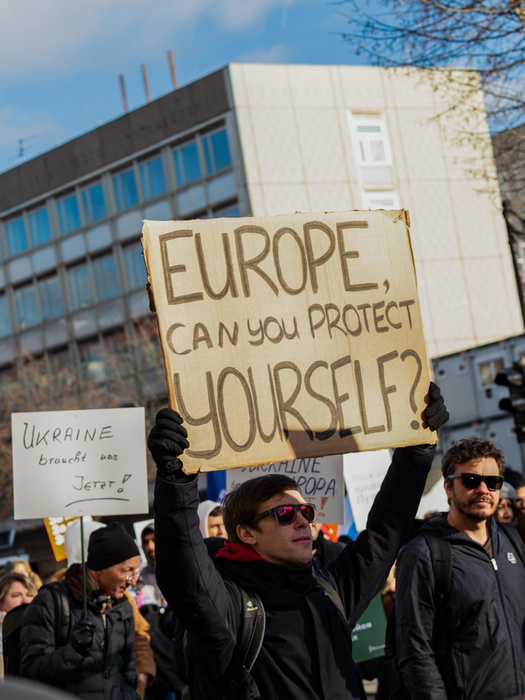 EUROPE,
CAN YOU PROTECT
YOURSELF?
UKRAINE
braucht uns
JETZT!
UKRAINE